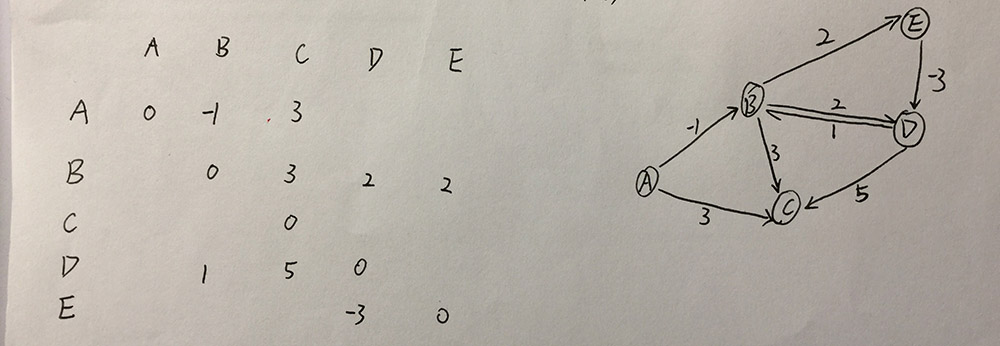 A B C D E
A 0 -1 3
B 0 3 2 2
C 0
D 1 5 0
E -3 0
E
2
-3
B
2
1
D
-1
3
A
5
3
C